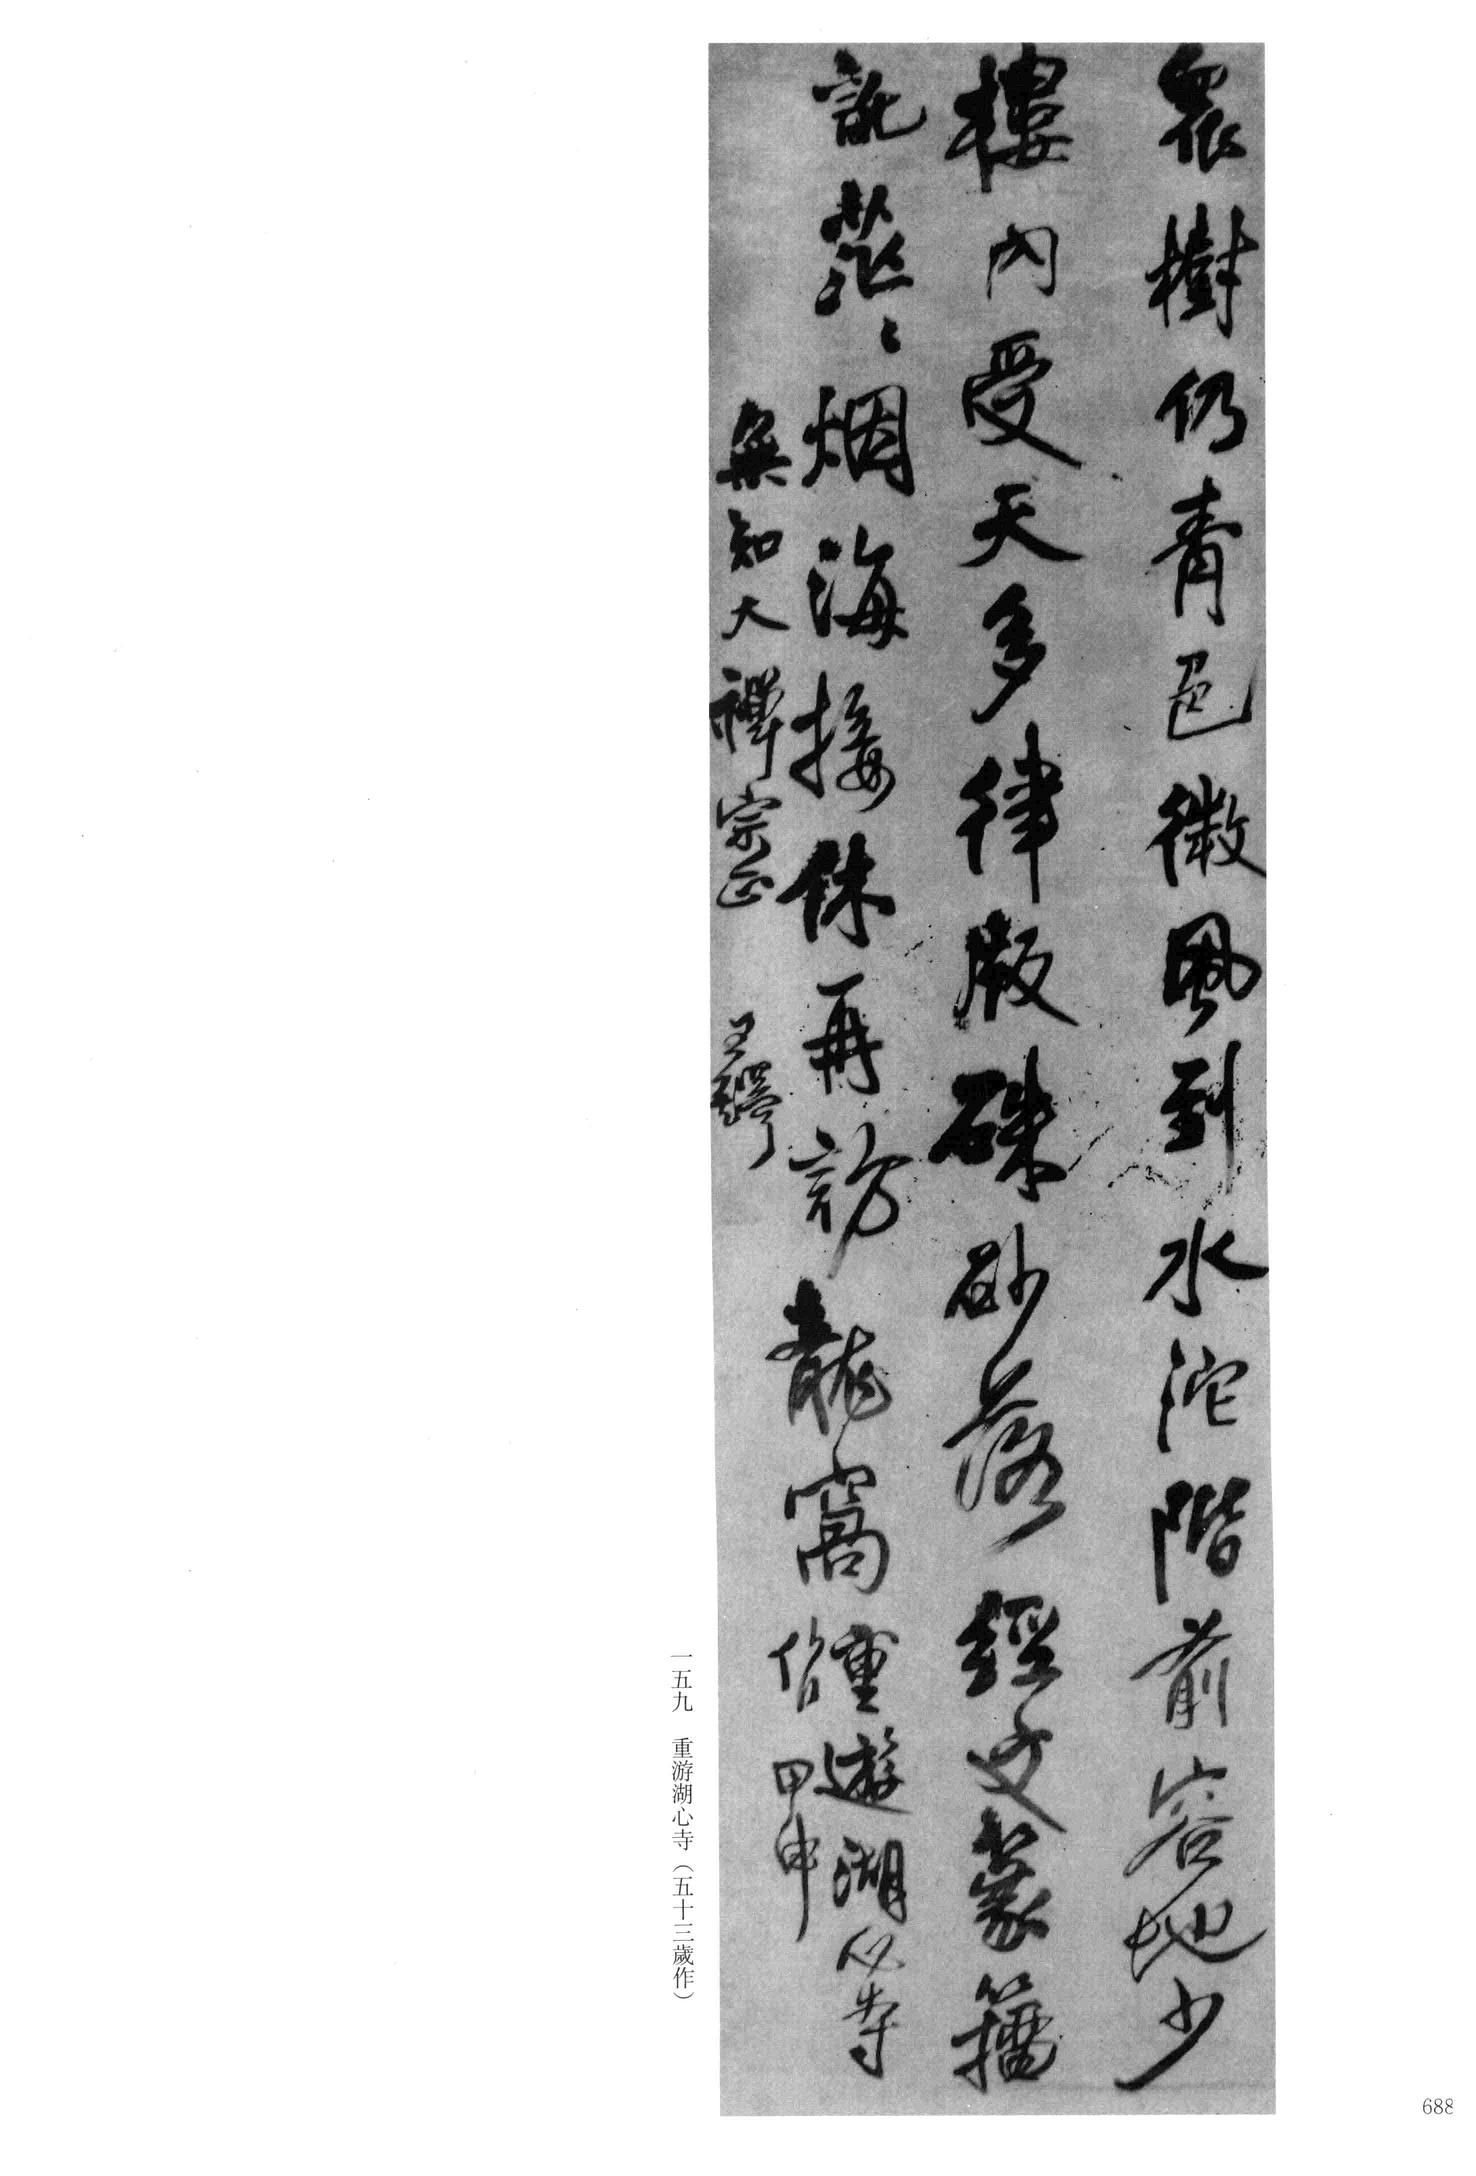 衆樹仍青邑微風到水沱階前容地少
樓内受天多律殿硃砂落經文篆籀
訛茫〻烟海接休再訪龍窩
重遊湖心寺
作甲申
無知大禪宗正
王鐸
一五九 重游湖心寺（五十三歲作）
688